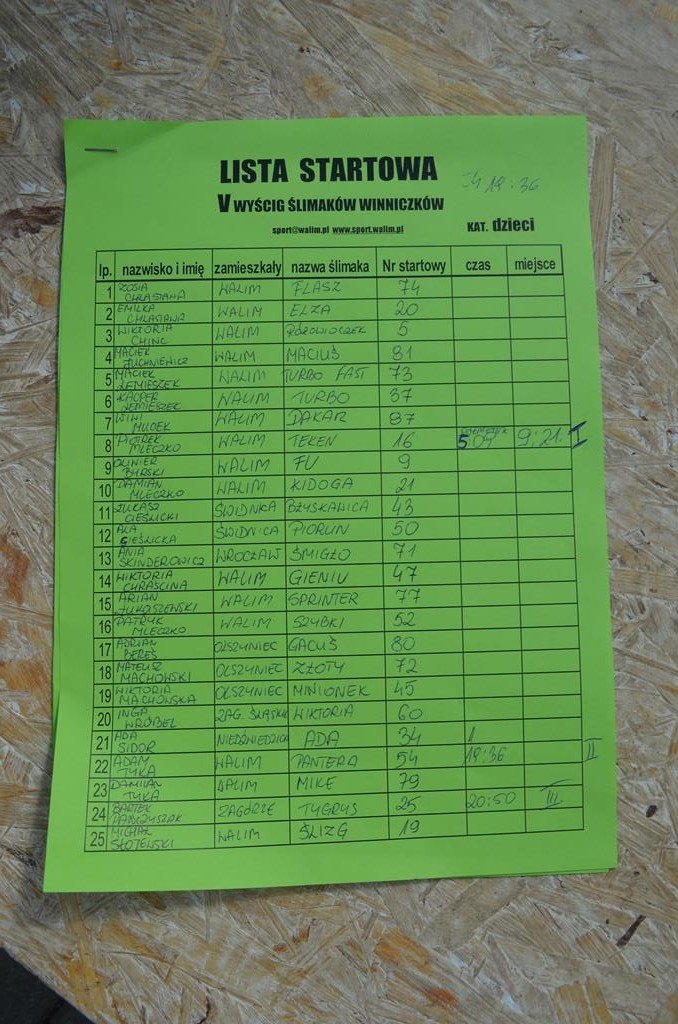 LISTA STARTOWA
V WYŚCIG ŚLIMAKÓW WINNICZKÓW
34 18:36
sport@walim.pl www.sport.walim.pl KAT. dzieci
lp. nazwisko i imię zamieszkały nazwa ślimaka Nr startowy czas miejsce
1 ZOSIA CHRASTAWA WALIM FLASZ 74
2 EMILKA CHRASTAWA WALIM ELZA 20
3 WIKTORIA CHINC WALIM 5
4 MACIEK WALIM MACIUŚ 81
5 MACIEK LEMIESZEK WALIM TURBO FAST 73
6 KACPER LEMIESZEK WALIM TURBO 37
7 WIWI MUCEK WALIM DAKAR 87
8 PIOTREK MLECZKO WALIM TEKEN 16 9:21 I
9 OLIWIER BYRSKI WALIM FU 9
10 DAMIAN MLECZKO WALIM KIDOGA 21
11 ŁUKASZ CIEŚLICKI ŚWIDNICA BŁYSKAWICA 43
12 ALA CIEŚLICKA ŚWIDNICA PIORUN 50
13 ANIA SKINDEROWICZ WROCŁAW ŚMIGŁO 71
14 WIKTORIA CHRAŚCINA WALIM GIENIU 47
15 ARIAN ŁUKASZEWSKI WALIM SPRINTER 77
16 PATRYK MLECZKO WALIM SZYBKI 52
17 ADRIAN BEREŚ OLSZYNIEC GACUŚ 80
18 MATEUSZ MACHOWSKI OLSZYNIEC ZŁOTY 72
19 WIKTORIA MACHOWSKA OLSZYNIEC MINIONEK 45
20 INGA WRÓBEL ZAG. ŚLĄSKIE WIKTORIA 60
21 ADA SIDOR NIEDŹWIEDZICA ADA 34
22 ADAM TYKA WALIM PANTERA 54 18:36 II
23 DAMIAN TYKA WALIM MIKE 79
24 BARTEK ZAGÓRZE TYGRYS 25 20:50 III
25 MICHAŁ SŁOTEŃSKI WALIM ŚLIZG 19